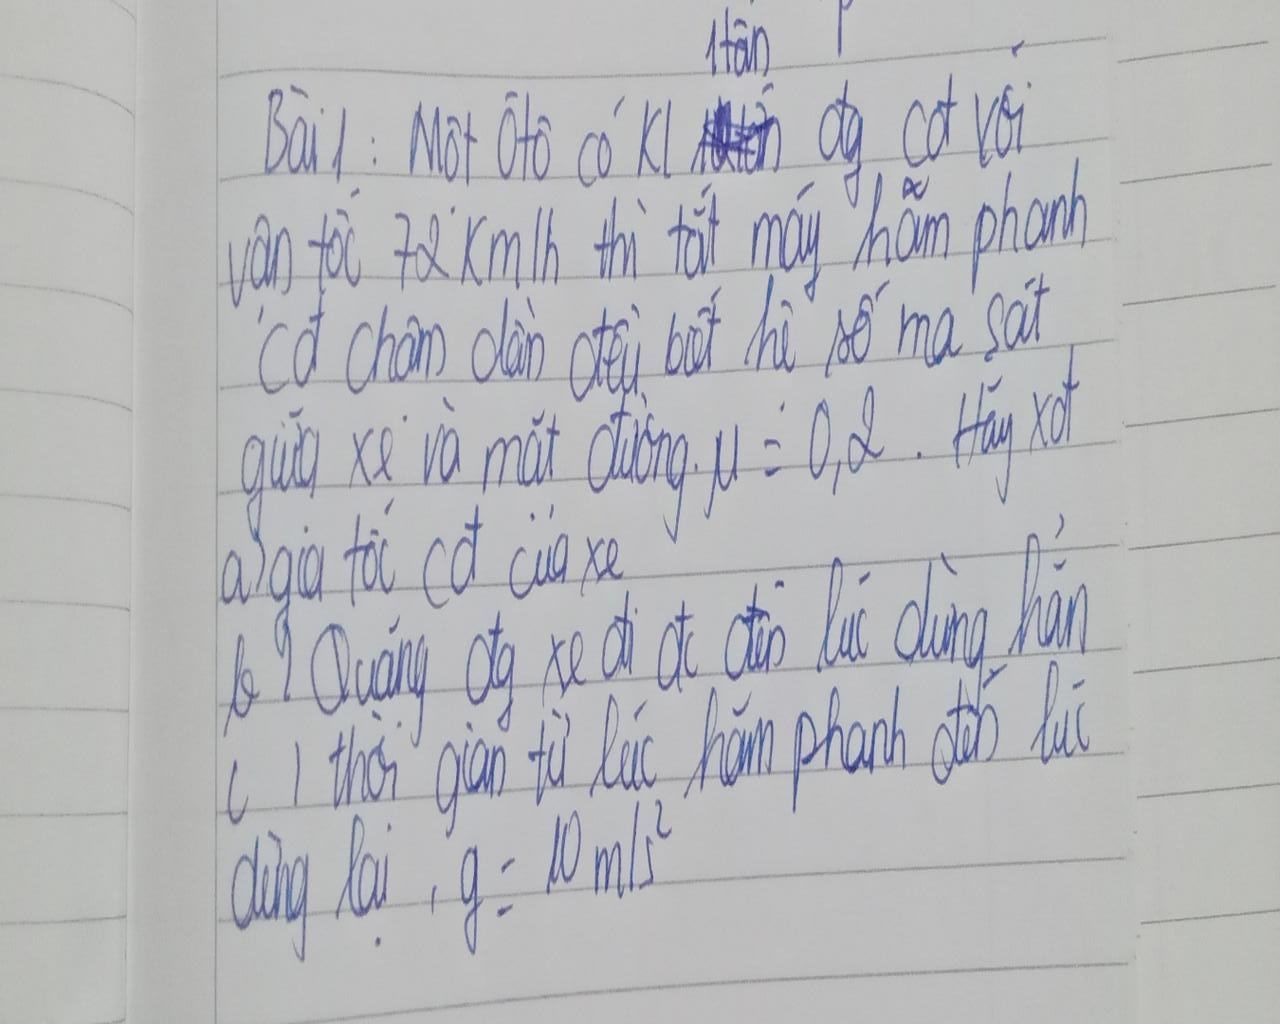 1tấn
Bài 1: Một Ôtô có Kl đg cđ với
vận tốc 72 Km/h thì tắt máy hãm phanh
cđ chậm dần đều biết hệ số ma sát
giữa xe và mặt đường. μ = 0,2. Hãy xđ
a) gia tốc cđ của xe
b) Quãng đg xe đi đc đến lúc dừng hẳn
c) thời gian từ lúc hãm phanh đến lúc
dừng lại, g = 10 m/s²